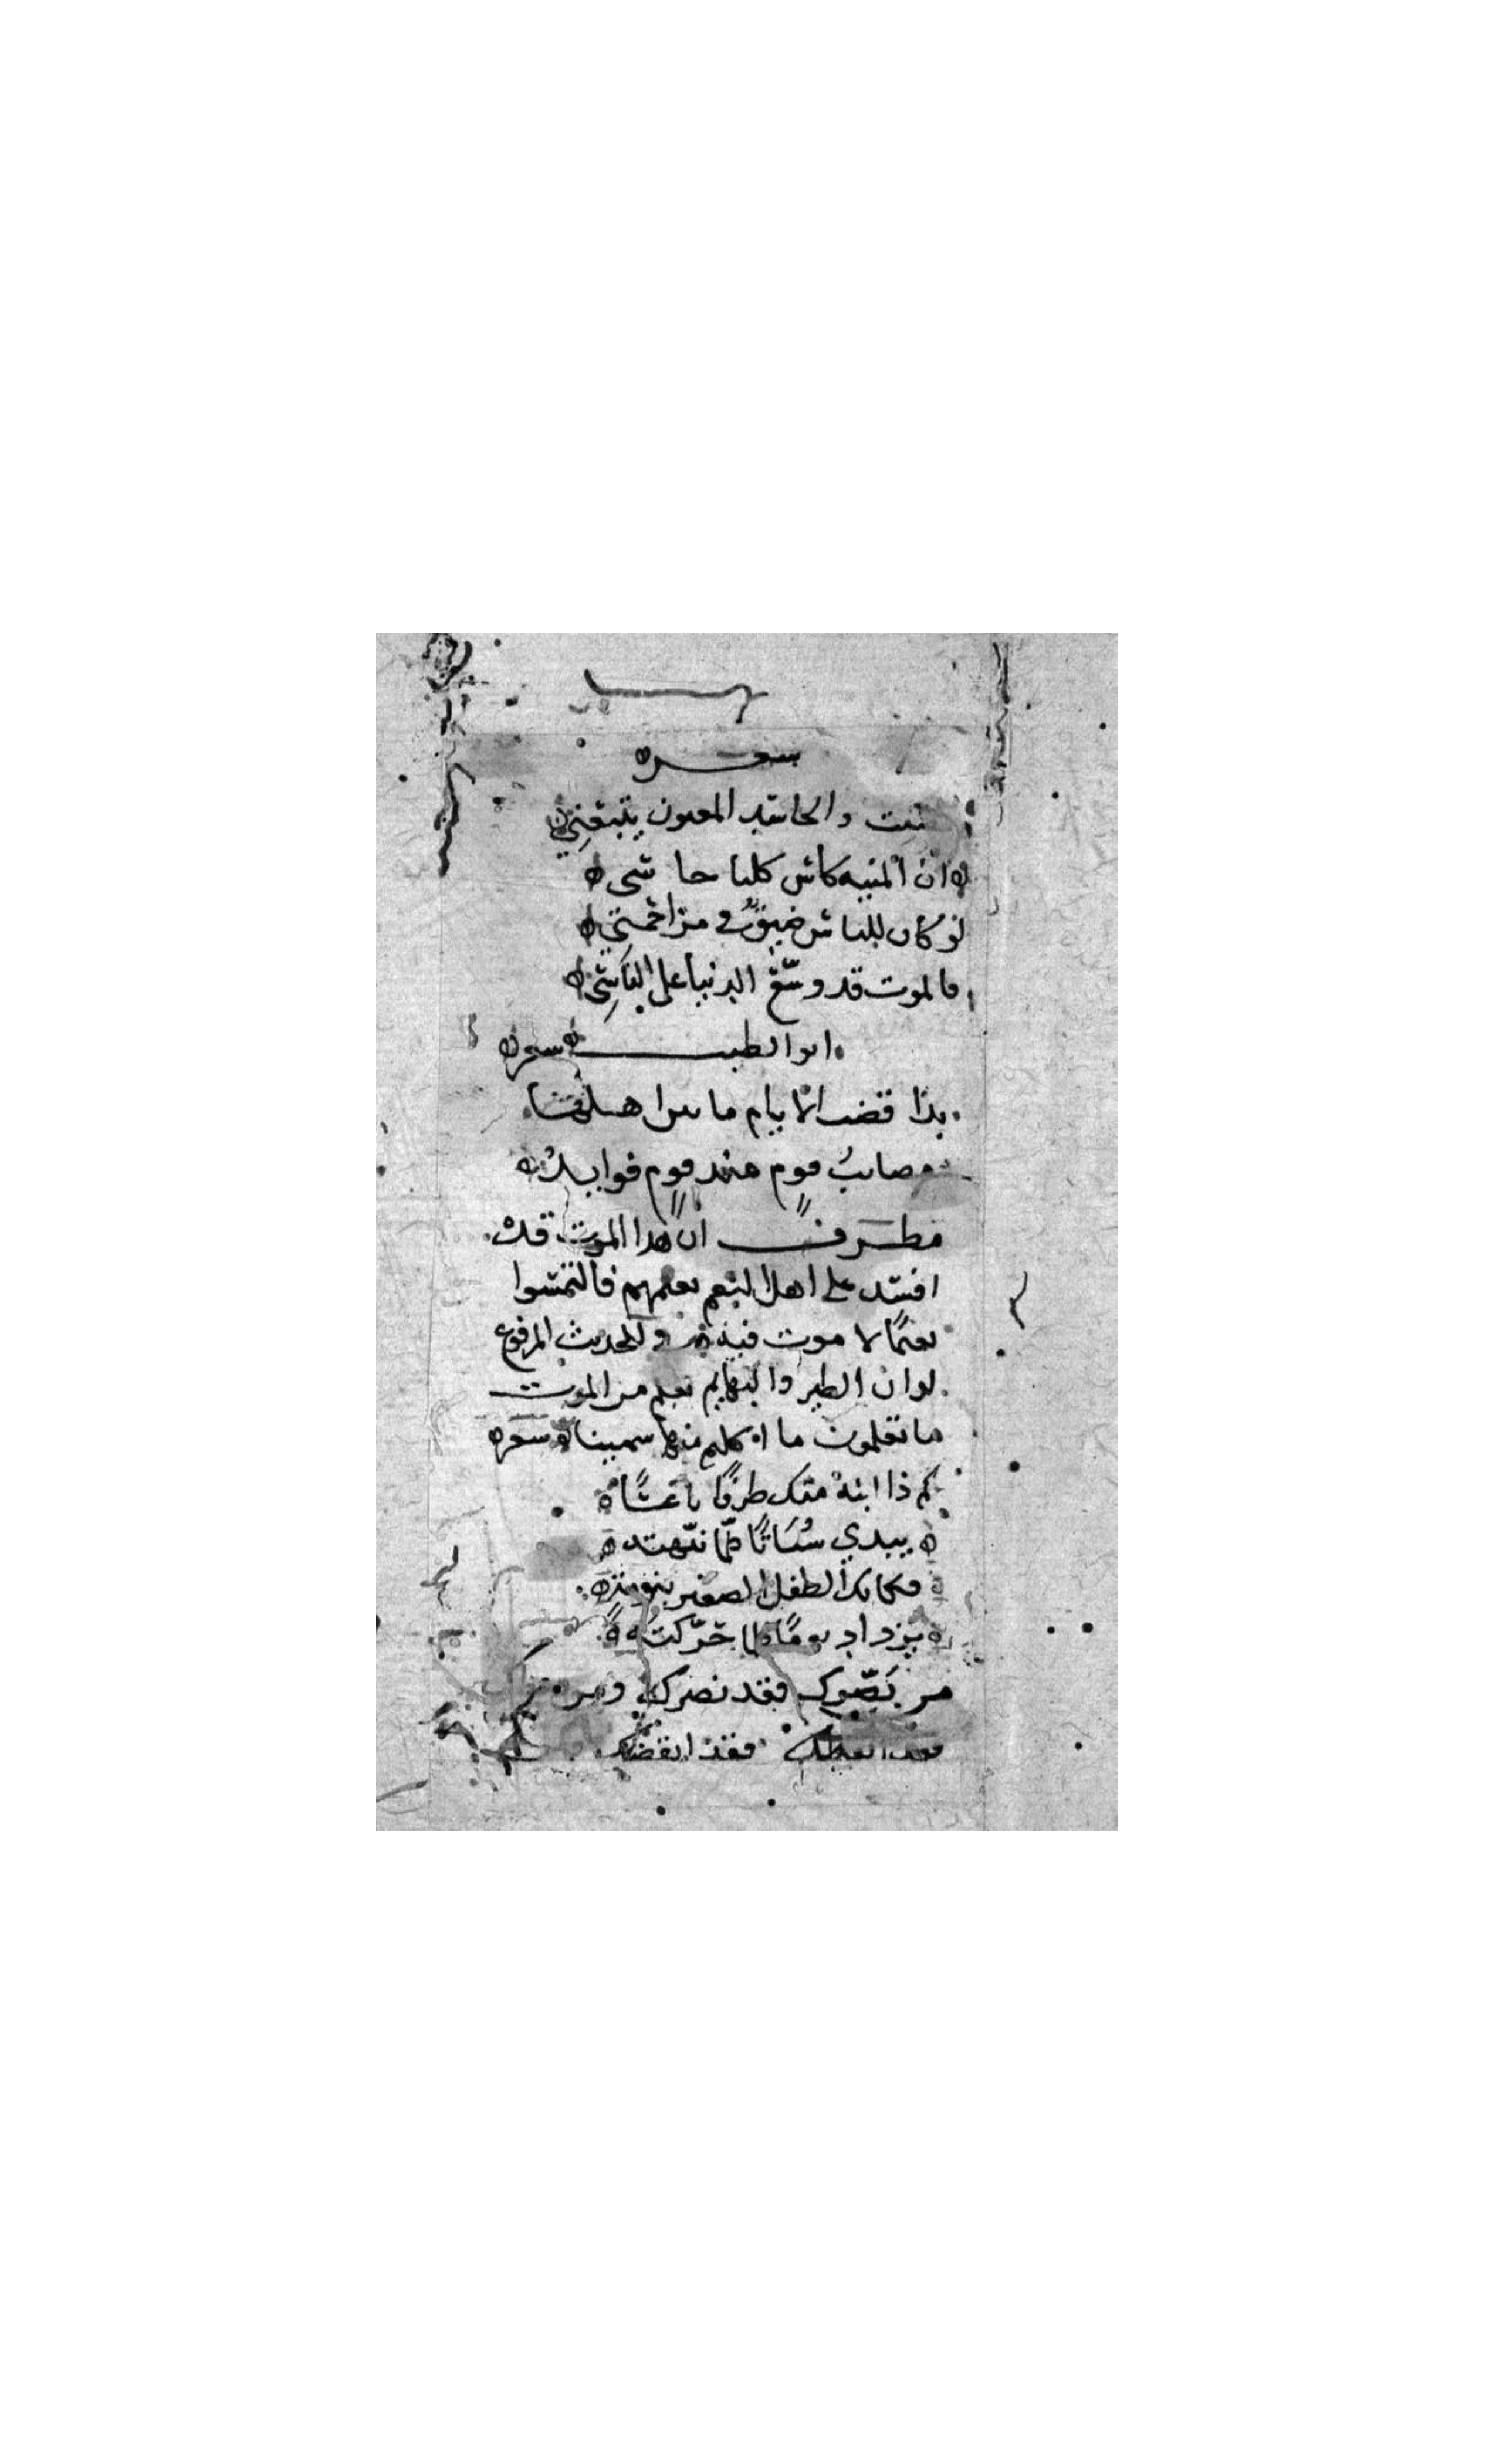 شعر
مت والحاسد المغبون يتبعني
ان المنيه كاس كلنا حاسى
لو كان للناس ضيق في مزاحمتي
فالموت قد وسّع الدنيا على الناسِ
ابو الطيب شعر
بذا قضت الايام ما بين اهلها
مصائبُ قومٍ عند قومٍ فوايدُ
مطرف ان هذا الموت قد
افسد على اهل النعيم نعيمهم فالتمسوا
نعيمًا لا موت فيه وفي الحديث المرفوع
لو ان الطير والبهايم تعلم من الموت
ما تعلمون ما اكلتم منها سمينا شعر
كم ذا انبه منك طرفًا ناعسًا
يبدي سُبَاتًا كلّما نبّهته
فكانك الطفل الصغير
يزداد نومًا كلما حرّكته
من بَصّرك فقد نصرك ومن
فقد ايقظك فقد